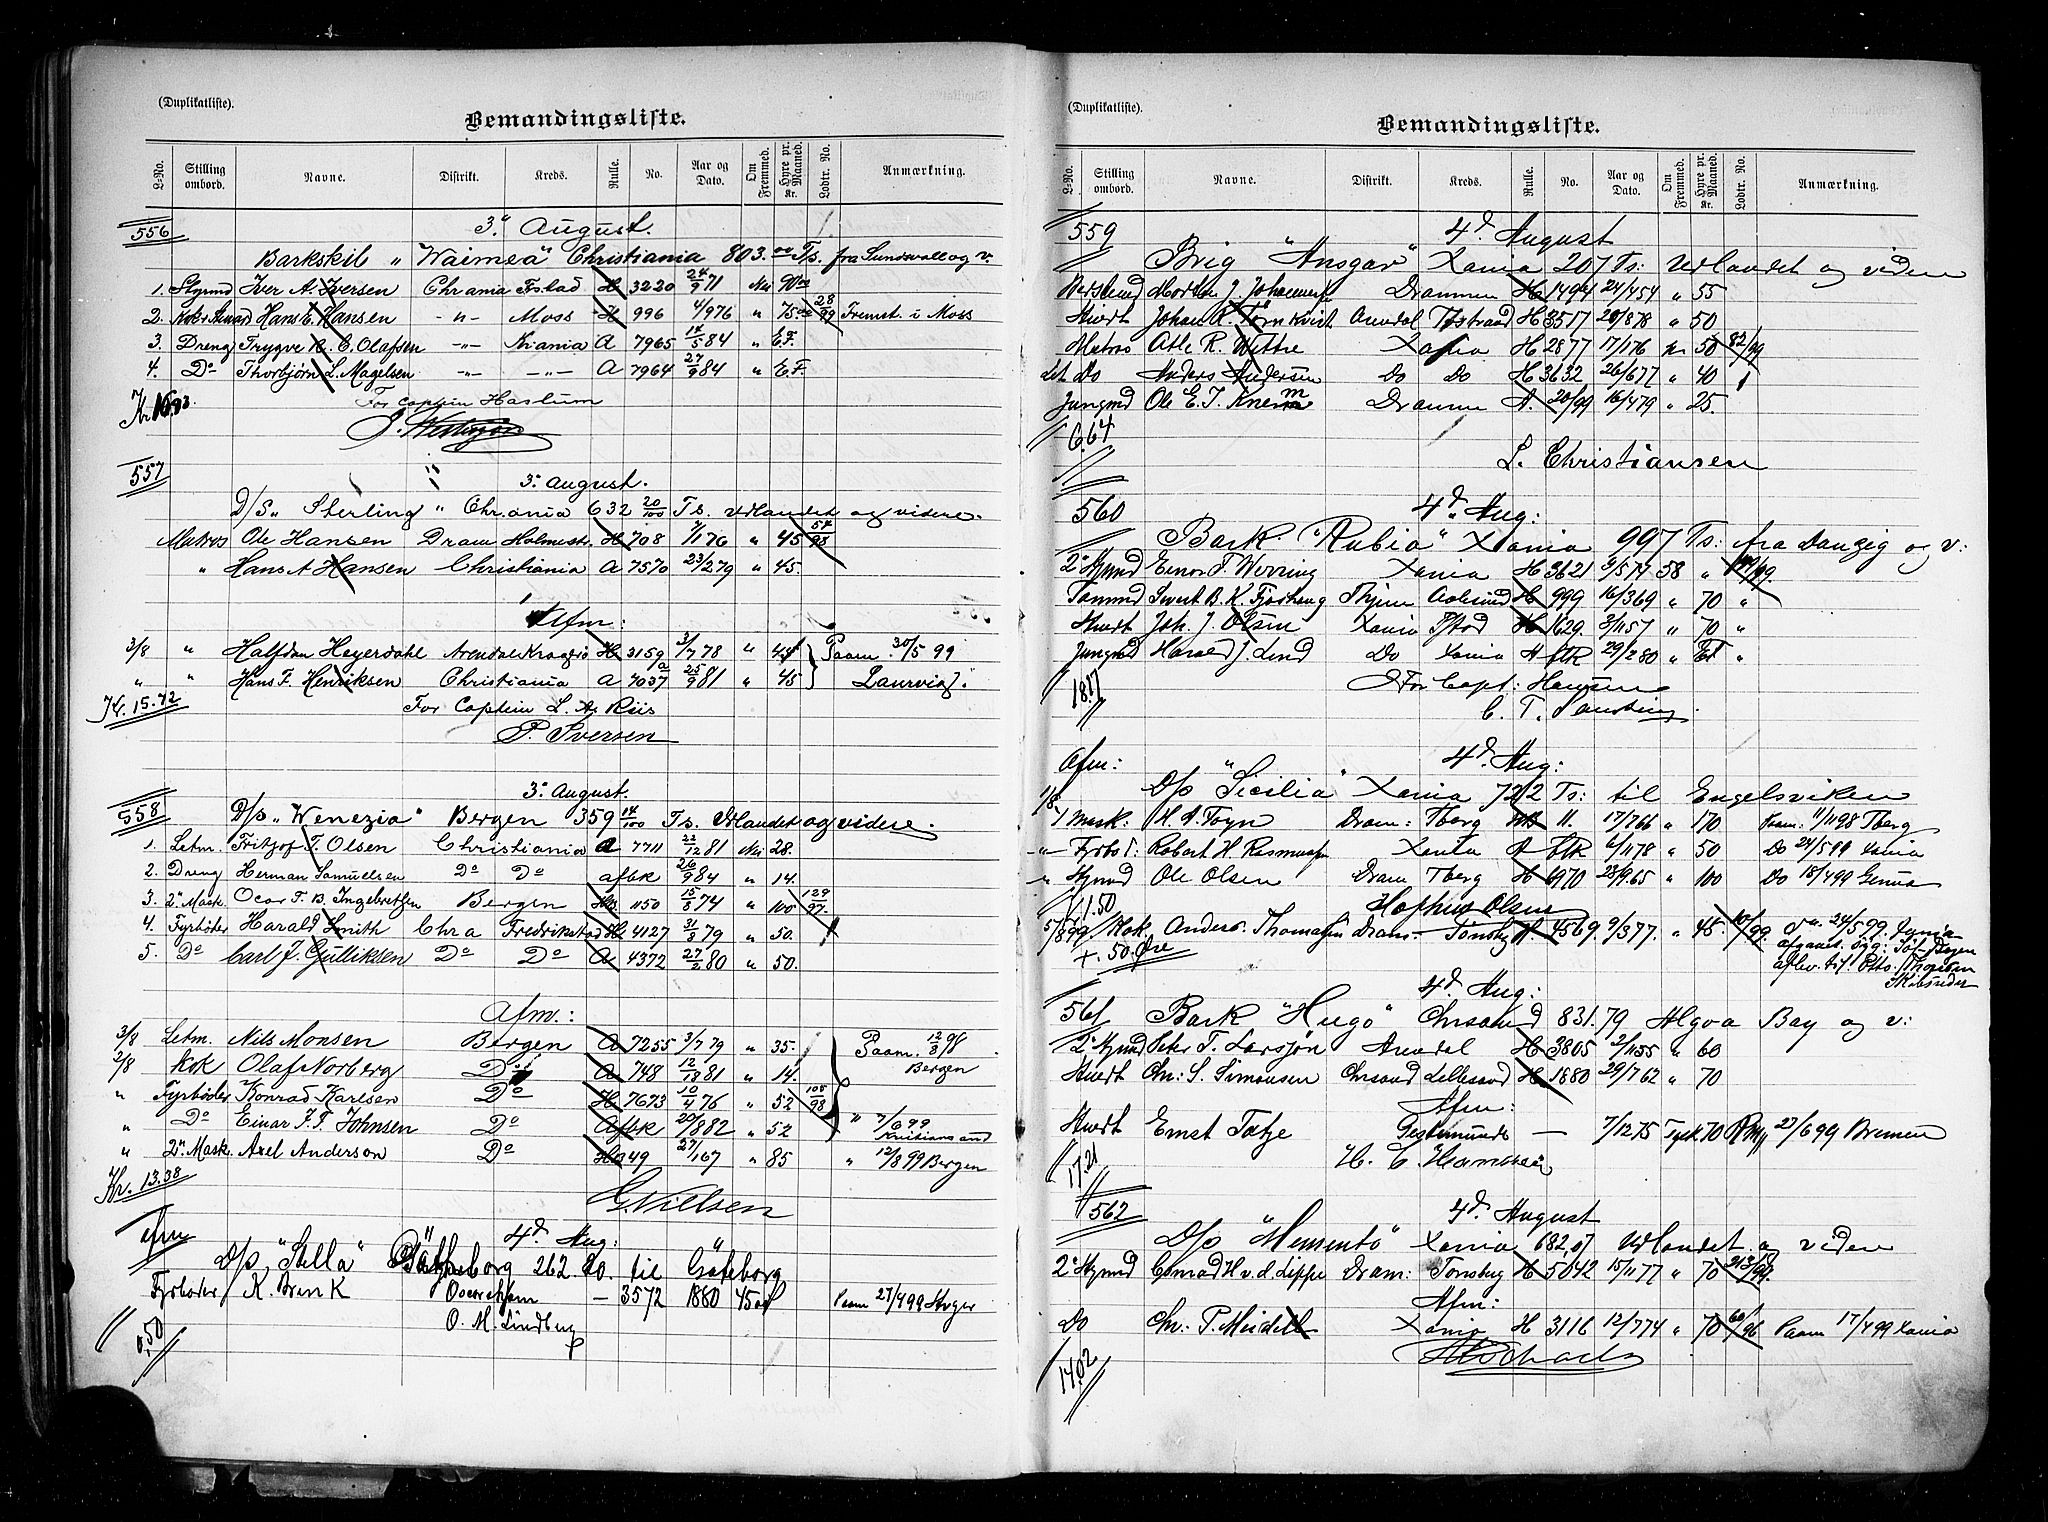 (Duplikatliste).
Bemandingsliste.
L-No. Stilling ombord. Navne. Distrikt. Kreds. Rulle. No. Aar og Dato. Om Fremmed. Hyre pr. Maaned. Kr. Lodtr. No. Anmærkning.
556 3. August.
Barkskib "Waimea" Christiania 803.00 Ts. fra Sundsvall og v.
1. Styrmd Iver A. Iversen Chrania Fstad H 3220 24/9 71 Nei 90.00
2. Kok Stuart Hans E. Hansen -"- Moss H 996 4/9 76 " 75.00 28/99 Fremst. i Moss
3. Dreng Trygve R. C. Olafsen -"- Kriania A 7965 14/5 84 " E.F.
4. Do Thorbjørn L. Magelsen -"- -"- A 7964 27/9 84 " E.F.
For Captein Haslum
557 3. August.
D/S. "Sterling" Chrania 632 20/100 Ts. Udlandet og videre.
Matros Ole Hansen Dram Holmestr. H 708 7/11 76 " 45 54/98
" Hans A Hansen Christiania A 7570 23/2 79 " 45.
Afm:
3/8 " Halfdan Heyerdahl Arendal Kragerø H 3159 3/7 78 " 45 Paam. 30/5 99
" " Hans F. Henriksen Christiania A 7037 25/9 81 " 45 Laurvig.
Kr. 15.72 For Captein L. A. Riis
P. Iversen
3. August.
558 D/p "Wenezia" Bergen 359 14/100 Ts. Udlandet og videre.
1. Letm. Fritjof T. Olsen Christiania A 7711 22/12 81 Nei 28.
2. Dreng Herman Samuelsen Do Do afbk 26/9 84 " 14.
3. 2. Mask. Oscar F. B. Ingebretsen Bergen HB. 1150 15/8 74 " 100 129/97.
4. Fyrbøder Harald Smith Chra Fredrikstad H 4127 31/3 79 " 50.
5. Do Carl J. Gulliksen Do Do A 4372 27/2 80 " 50.
Afm.:
3/8 Letm. Nils Monsen Bergen A 7255 3/7 79 " 35. Paam. 12/8 98
2/8 Kok Olaf Norberg Do A 748 12/12 81 " 14. Bergen
" Fyrbøder Konrad Karlsen Do H 7673 10/4 76 " 52 105/98
" Do Einar F. F. Johnsen Do Afbk 20/8 82 " 52 " 7/6 99 Kristiansand
" 2. Mask. Axel Anderson Do HB 49 27/1 67 " 85 " 12/8 99 Bergen
Kr. 13.38
G. Nielsen
Afm 4d. Aug:
D/p "Stella" Gøtheborg 262.20. til Gøteborg
Fyrbøder K. Brink — 3572 1880 45 Paam 27/4 99
O. M. Lindberg
0.50
(Duplikatliste).
Bemandingsliste.
L-No. Stilling ombord. Navne. Distrikt. Kreds. Rulle. No. Aar og Dato. Om Fremmed. Hyre pr. Maaned. Kr. Lodtr. No. Anmærkning.
559 4d August
Brig "Ansgar" Xania 207 Ts: Udlandet og viden
Morten J. Johannesen Drammen H 1494 24/4 54 " 55
Stuert Johan R. Tørnkvist Arendal Tvstrand H 3517 20/8 78 " 50
Matros Atle R. Wettre Xania H 2877 17/1 76 " 50 82/99
Let Do Anders Andersen Do Do H 3632 26/6 77 " 40
Jungmd Ole E. J. Knem Drammen A. 20/99 16/4 79 " 25.
6.64
L. Christiansen
560 4d. Aug:
Bark "Rubia" Xania 997 Ts: fra Danzig og v:
2 Stymd Einar F. Werring Xania H 3621 3/5 74 58 "
Tømmd Sivert B. K. Fjørhaug Thjem Aalesund H 999 16/3 69 " 70 "
Stuert Joh. J. Olsen Xania Fstad H 1629. 3/11 57 " 70 "
Jungmd Harald J. Lind Do Xania A fbk 29/2 80 "
18.17 For Capt: Hansen
Afm: 4d. Aug:
1/8 D/p "Sicilia" Xania 722 Ts: til Engelsviken
1 Mask: H. A. Foyn Dram: Tberg HB 11. 17/7 66 " 170 Paam: 11/11 98 Tberg
-"- Fyrbød: Robert H Rasmussen Xania A fbk 6/11 78 " 50 Do 24/5 99 Xania
" Stymd Ole Olsen Dram Tberg H 6970 28/9 65 " 100 Do 18/4 99 Genua
1.50
5/8 99 Kok. Anders Thomassen Dram. Tønsberg H. 4569 9/3 77. " 45.
+ 50 Øre
4d. Aug:
561 Bark "Hugo" Chrsand 831.79 Algoa Bay og v:
2 Stymd Peter T. Larsjon Arendal H 3805 2/11 55 " 60
Stuert Chr: S. Simonsen Chrsand Lillesand H 1880 29/7 62 " 70
Afm:
Stuert Ernst Tatje Gestemunde — 7/12 75 Tysk 70 27/6 99 Bremen
H. C. Hansen
17.21
562 4d. August
D/p "Memento" Xania 682,07 Udlandet og viden
2 Stymd Conrad H v. d. Lippe Dram: Tønsberg H 5042 15/11 77 " 70
Afm:
Do Chr: P. Meidell Xania H 3116 12/7 74 " 70 60/96 Paam 17/4 99 Xania
14.02